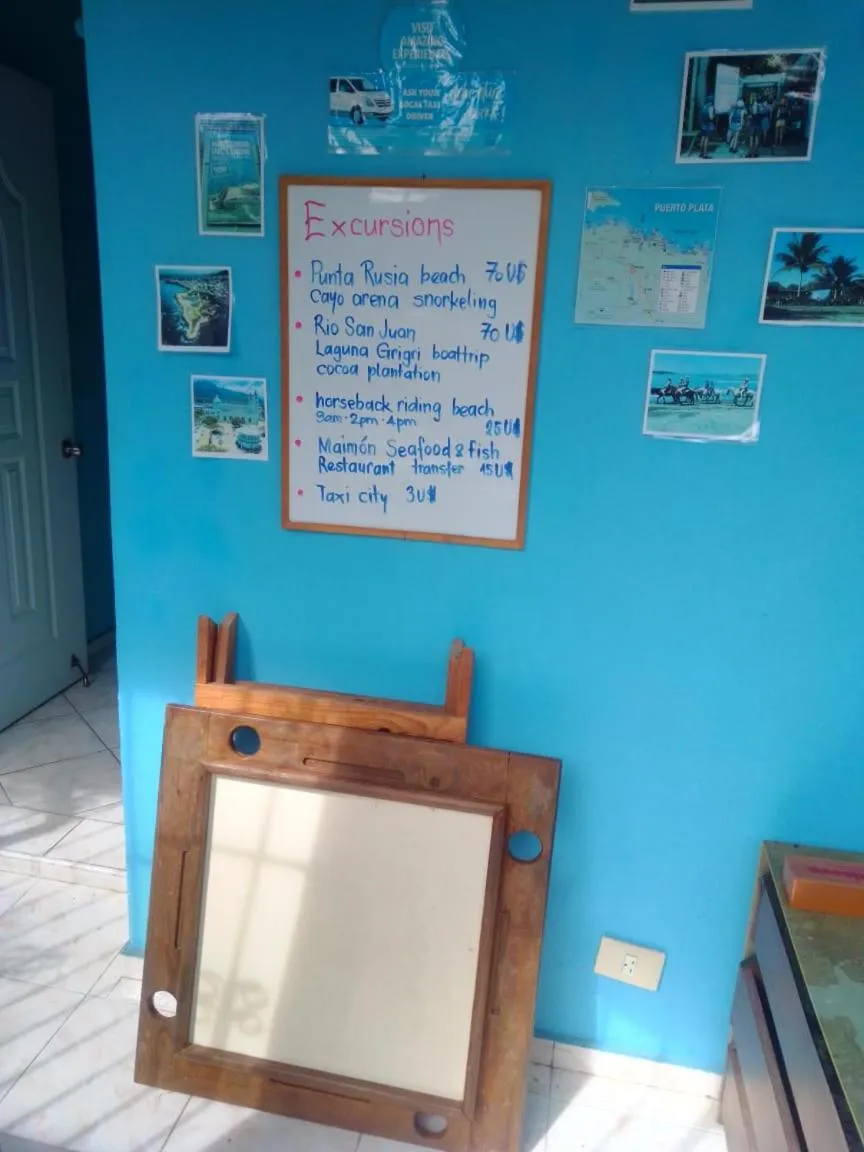 VISIT
AMAZING
EXPERIENCE
ASK YOUR
LOCAL TAXI
DRIVER
Excursions
Punta Rusia beach 70 U$
Cayo arena snorkeling
Rio San Juan 70 U$
Laguna Grigri boattrip
cocoa plantation
horseback riding beach
9am·2pm·4pm 25U$
Maimón Seafood & fish
Restaurant transfer 15U$
Taxi city 3U$
PUERTO PLATA